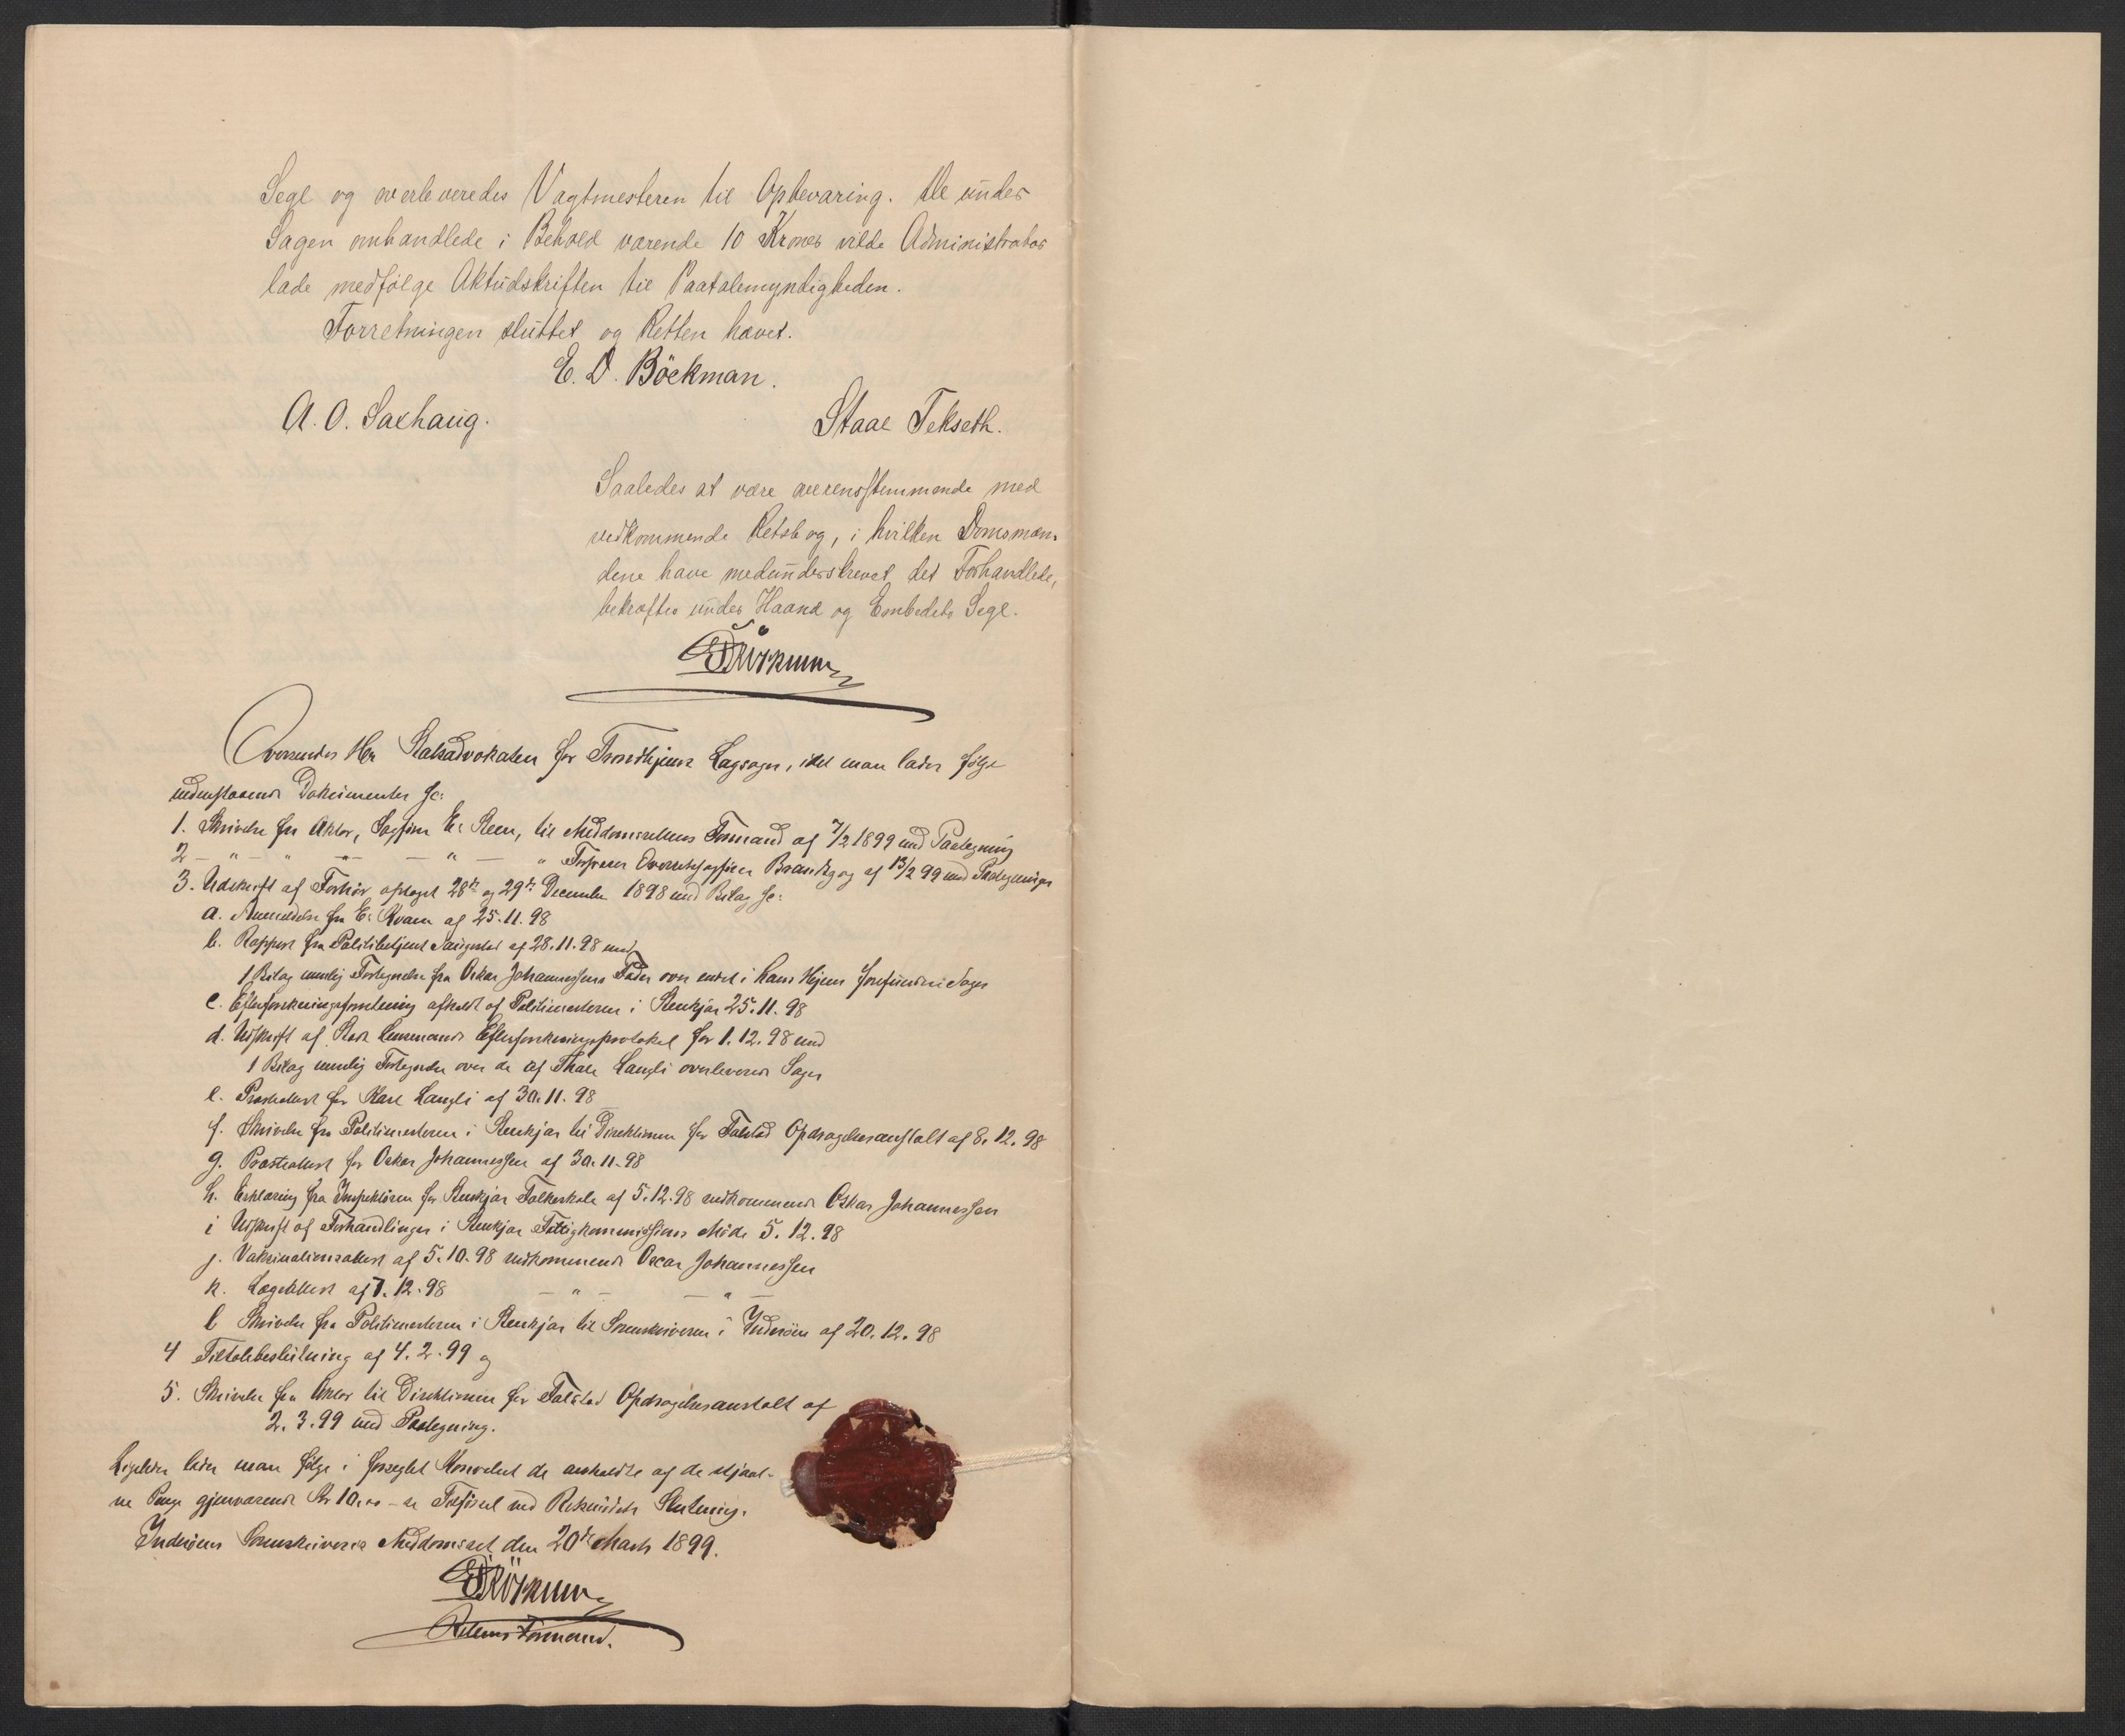 Segl og overleveredes Vagtmesteren til Opbevaring. De under
Sagen omhandlede i Behold værende 10 Kroner vilde Administrator
lade medfølge Aktudskriften til Paatalemyndigheden.
Forretningen sluttet og Retten hævet.
E. D. Böckman.
A. O. Saxhaug. Staal Tekseth.
Saaledes at være overensstemmende med
vedkommende Retsbog, i hvilken Domsmæn-
dene have medunderskrevet det Forhandlede,
bekræftes under Haand og Embedets Segl.
EDBöckman
Oversendes Hr Statsadvokaten for Trondhjems Lagsogn, idet man lader følge
nedenstaaende Dokumenter sc:
1. Skrivelse fra Aktor, Sagfører E: Steen, til Meddomsrettens Formand af 7/2 1899 med Paategning
2 — " — " — " — " — " Forsvarer Overretssagfører af 13/2 99 med Paategninger
3. Udskrift af Forhör optaget 28de og 29de December 1898 med Bilag sc:
a. Anmeldelse fra E: Kvam af 25.11.98
b. Rapport fra Politibetjent af 28.11.98 med
1 Bilag nemlig Fortegnelse fra Oskar Johannessens Fader over endel i hans Hjem forefundne Sager
c. Efterforskningsforretning afholdt af Politimesteren i Stenkjær 25.11.98
d. Udskrift af Stod Lensmands Efterforskningsprotokol for 1.12.98 med
1 Bilag nemlig Fortegnelse over de af Langli overleverede Sager
e. Præsteattest for Karl Langli af 30.11.98
f. Skrivelse fra Politimesteren i Stenkjær til Direktionen for Falstad Opdragelsesanstalt af 8.12.98
g. Præsteattest for Oskar Johannessen af 30.11.98
h. Erklæring fra Inspektören for Stenkjær Folkeskole af 5.12.98 vedkommende Oskar Johannessen
i Udskrift af Forhandlinger i Stenkjær Fattigkommissions Möde 5.12.98
j. Vaksinationsattest af 5.10.98 vedkommende Oscar Johannessen
k. Lægeattest af 7.12.98 — " — — " —
l Skrivelse fra Politimesteren i Stenkjær til Sorenskriveren i Inderöen af 20.12.98
4 Tiltalebeslutning af 4.2.99 og
5. Skrivelse fra Aktor til Direktionen for Falstad Opdragelsesanstalt af
2.3.99 med Paategning.
Ligeledes lader man følge i forseglet Konvolut de anholdte af de stjaal-
ne Penge gjenværende Kr 10.00 – se Tilførsel ved Retsmödets Slutning.
Inderöens Sorenskriveries Meddomsret den 20de Marts 1899.
EDBöckman
Rettens Formand.